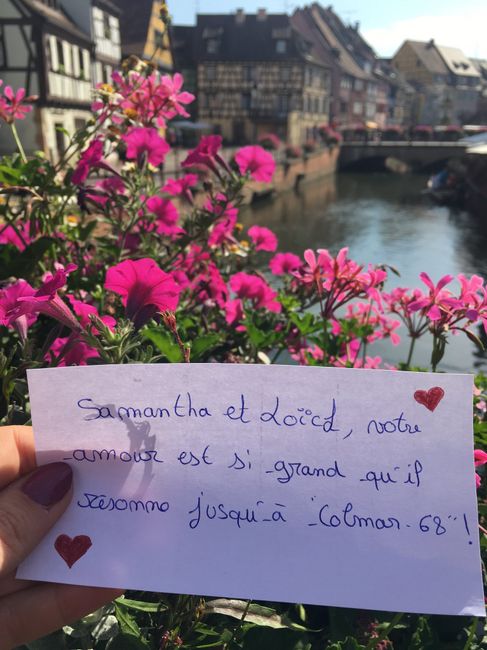 Samantha et Loïcd, votre
amour est si grand qu'il
résonne jusqu'à "Colmar-68"!